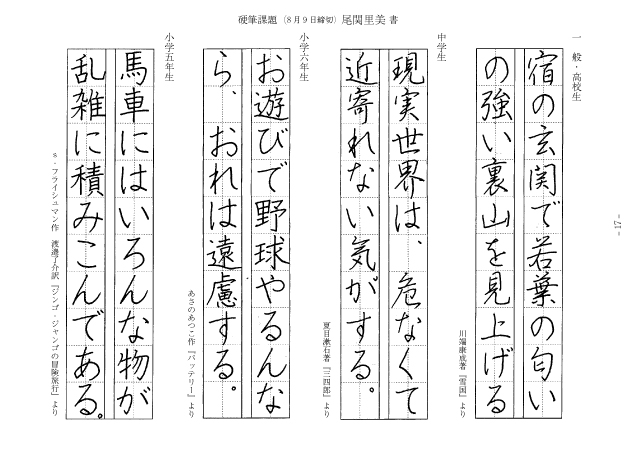 硬筆課題（８月９日締切）尾関里美 書
一般・高校生
宿の玄関で若葉の匂い
の強い裏山を見上げる
川端康成著『雪国』より
中学生
現実世界は、危なくて
近寄れない気がする。
夏目漱石著『三四郎』より
小学六年生
お遊びで野球やるんな
ら、おれは遠慮する。
あさのあつこ作『バッテリー』より
小学五年生
馬車にはいろんな物が
乱雑に積みこんである。
s・フライシュマン作 渡邊了介訳『ジンゴ・ジャンゴの冒険旅行』より
- 17 -